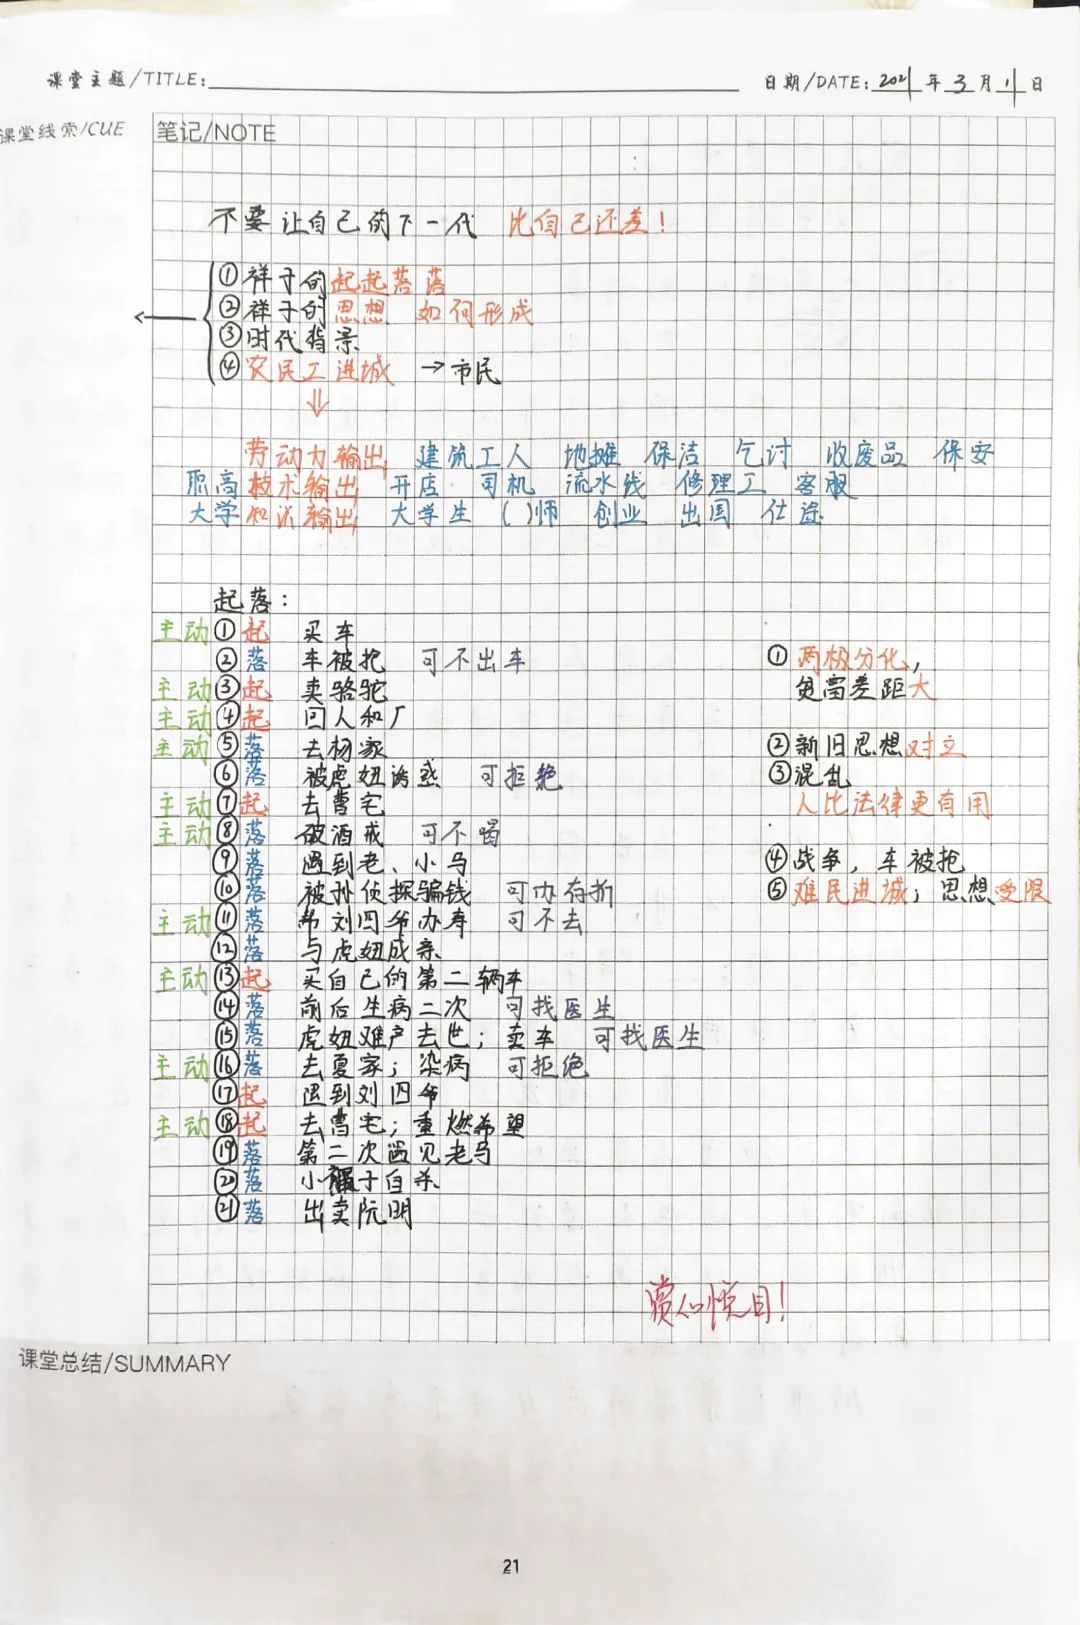 课堂主题/TITLE: 日期/DATE: 2021年3月11日
课堂线索/CUE 笔记/NOTE
不要让自己的下一代 比自己还差！
①祥子的起起落落
②祥子的思想 如何形成
③时代背景
④农民工进城 →市民
⇓
劳动力输出 建筑工人 地摊 保洁 乞讨 收废品 保安
职高 技术输出 开店 司机 流水线 修理工 客服
大学 知识输出 大学生 ( )师 创业 出国 仕途
起落：
主动①起 买车
②落 车被抢 可不出车
主动③起 卖骆驼
主动④起 回人和厂
主动⑤落 去杨家
⑥落 被虎妞诱惑 可拒绝
主动⑦起 去曹宅
主动⑧落 破酒戒 可不喝
⑨落 遇到老、小马
⑩落 被孙侦探骗钱 可办存折
主动⑪落 帮刘四爷办寿 可不去
⑫落 与虎妞成亲
主动⑬起 买自己的第二辆车
⑭落 前后生病二次 可找医生
⑮落 虎妞难产去世；卖车 可找医生
主动⑯落 去夏家；染病 可拒绝
⑰起 遇到刘四爷
主动⑱起 去曹宅；重燃希望
⑲落 第二次遇见老马
⑳落 小福子自杀
㉑落 出卖阮明
①两极分化，
贫富差距大
②新旧思想对立
③混乱
人比法律更有用
④战争，车被抢
⑤难民进城；思想受限
赏心悦目！
课堂总结/SUMMARY
21